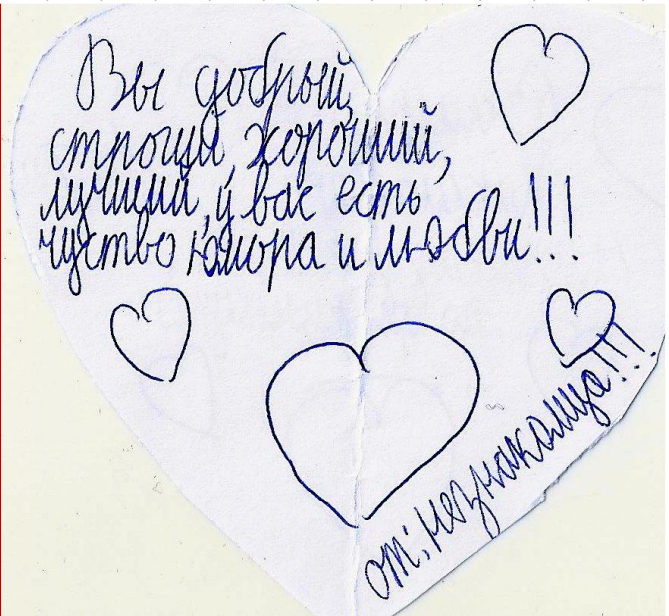 Вы добрый,
строгий, хороший,
лучший, у вас есть
чуство юмора и любви!!!
от: незнакомца!!!